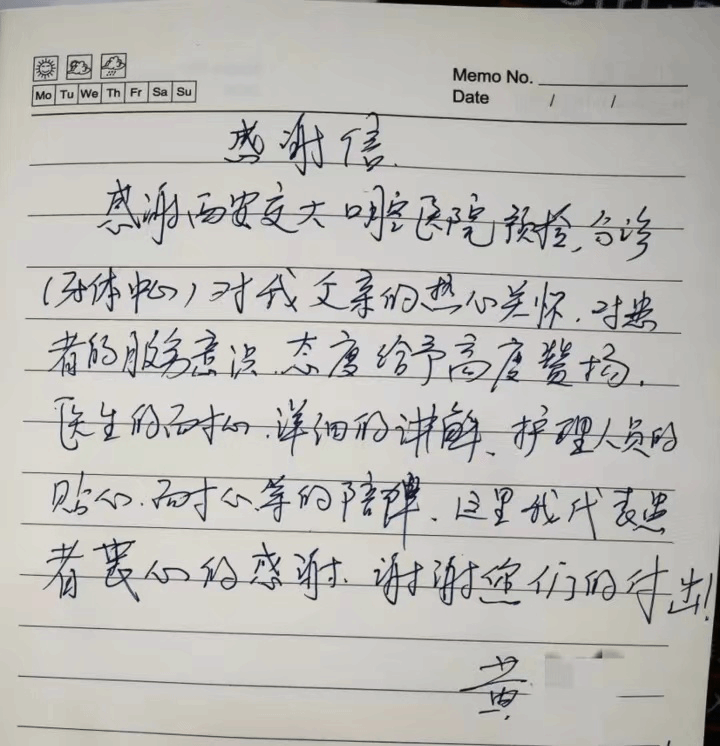 Memo No.
Mo Tu We Th Fr Sa Su
Date / /
感谢信.
感谢西安交大口腔医院预检,分诊
(牙体中心)对我父亲的热心关怀.对患
者的服务意识.态度给予高度赞扬.
医生的耐心.详细的讲解、护理人员的
贴心.耐心等的陪伴、这里我代表患
者衷心的感谢.谢谢您们的付出!
黄